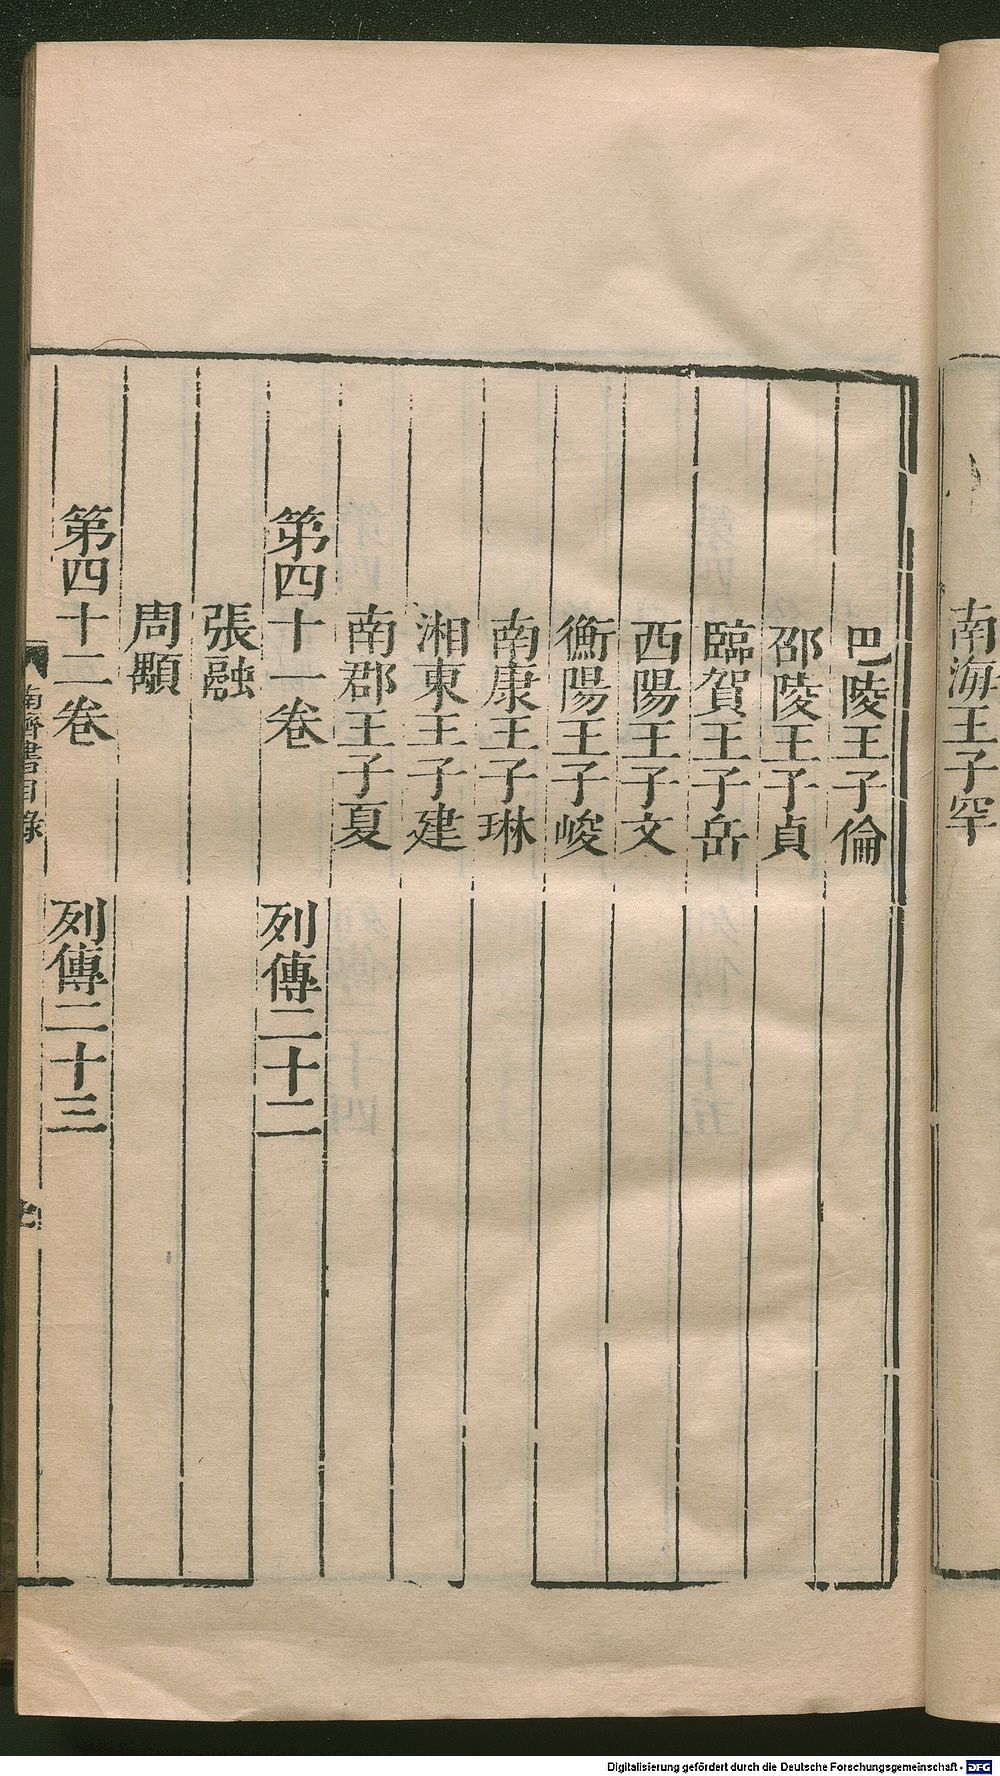 南海王子罕
巴陵王子倫
邵陵王子貞
臨賀王子岳
西陽王子文
衡陽王子峻
南康王子琳
湘東王子建
南郡王子夏
第四十一卷 列傳二十二
張融
周顒
第四十二卷 列傳二十三
南齊書目錄
Digitalisierung gefördert durch die Deutsche Forschungsgemeinschaft - DFG